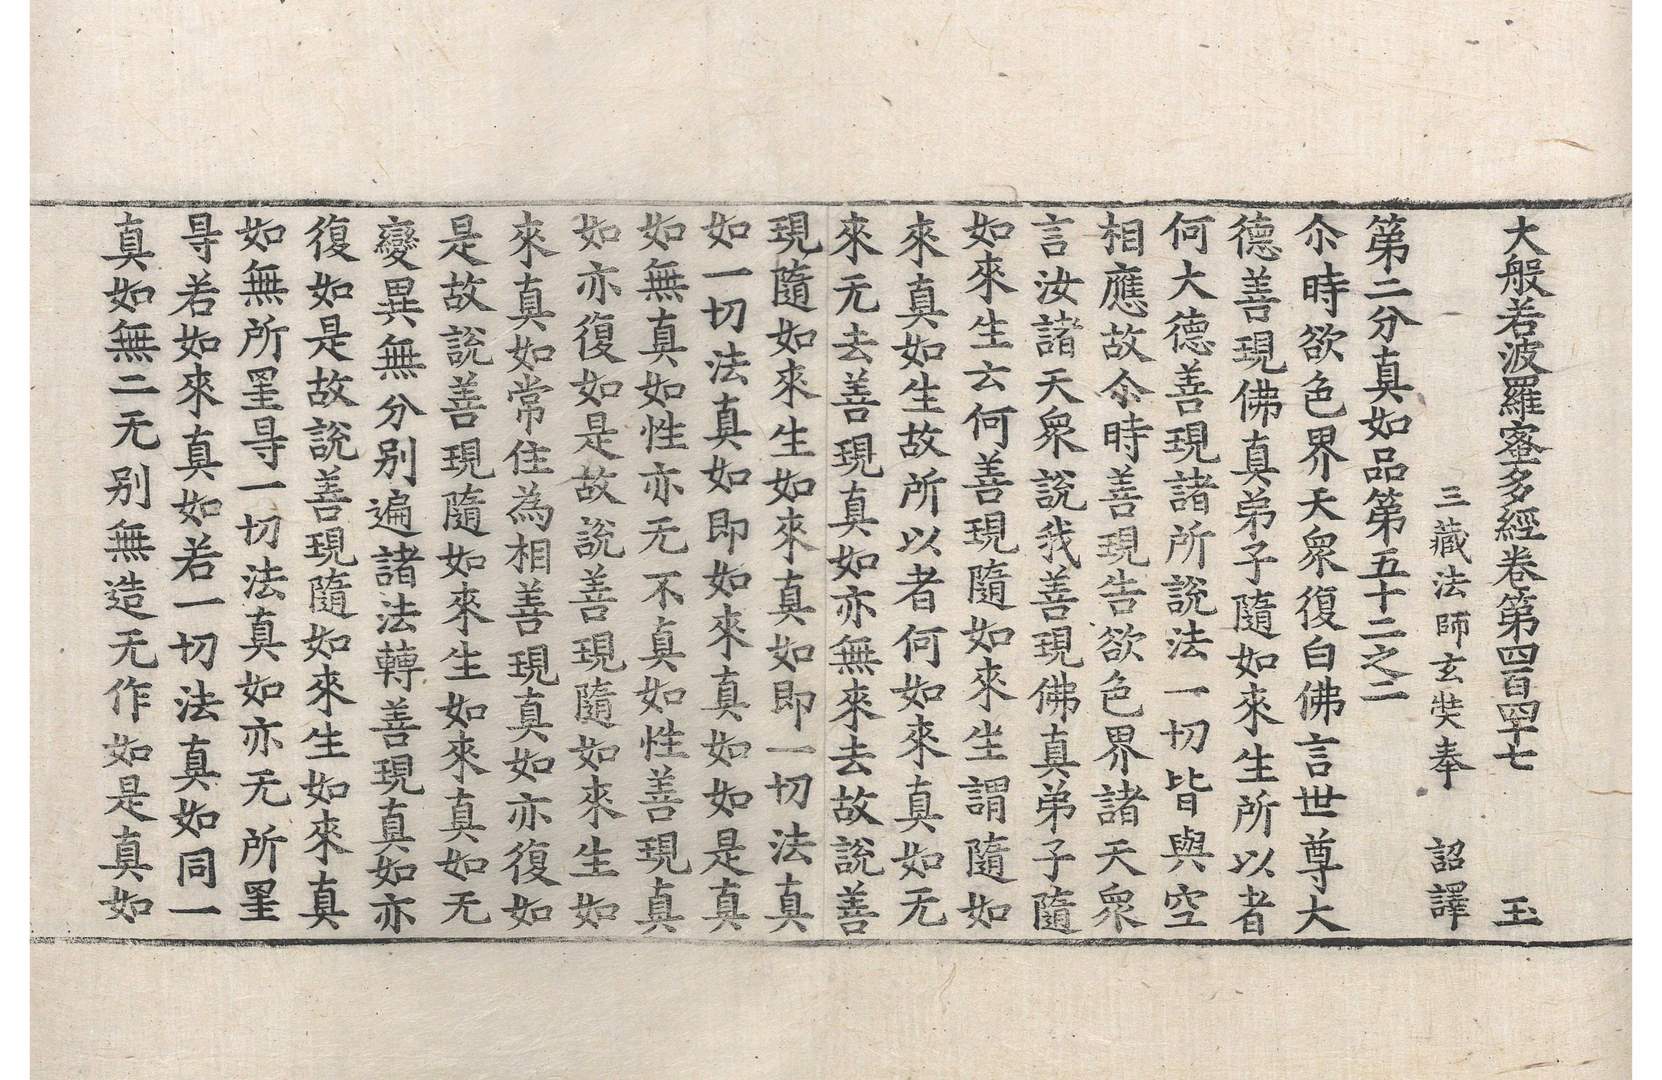 大般若波羅蜜多經卷第四百四十七　玉
三藏法師玄奘奉　詔譯
第二分真如品第五十二之二
尒時欲色界天衆復白佛言世尊大
德善現佛真弟子隨如來生所以者
何大德善現諸所說法一切皆與空
相應故尒時善現告欲色界諸天衆
言汝諸天衆說我善現佛真弟子隨
如來生云何善現隨如來生謂隨如
來真如生故所以者何如來真如无
來无去善現真如亦無來去故說善
現隨如來生如來真如即一切法真
如一切法真如即如來真如如是真
如無真如性亦无不真如性善現真
如亦復如是故說善現隨如來生如
來真如常住為相善現真如亦復如
是故說善現隨如來生如來真如无
變異無分别遍諸法轉善現真如亦
復如是故說善現隨如來生如來真
如無所罣㝵一切法真如亦无所罣
㝵若如來真如若一切法真如同一
真如無二无别無造无作如是真如